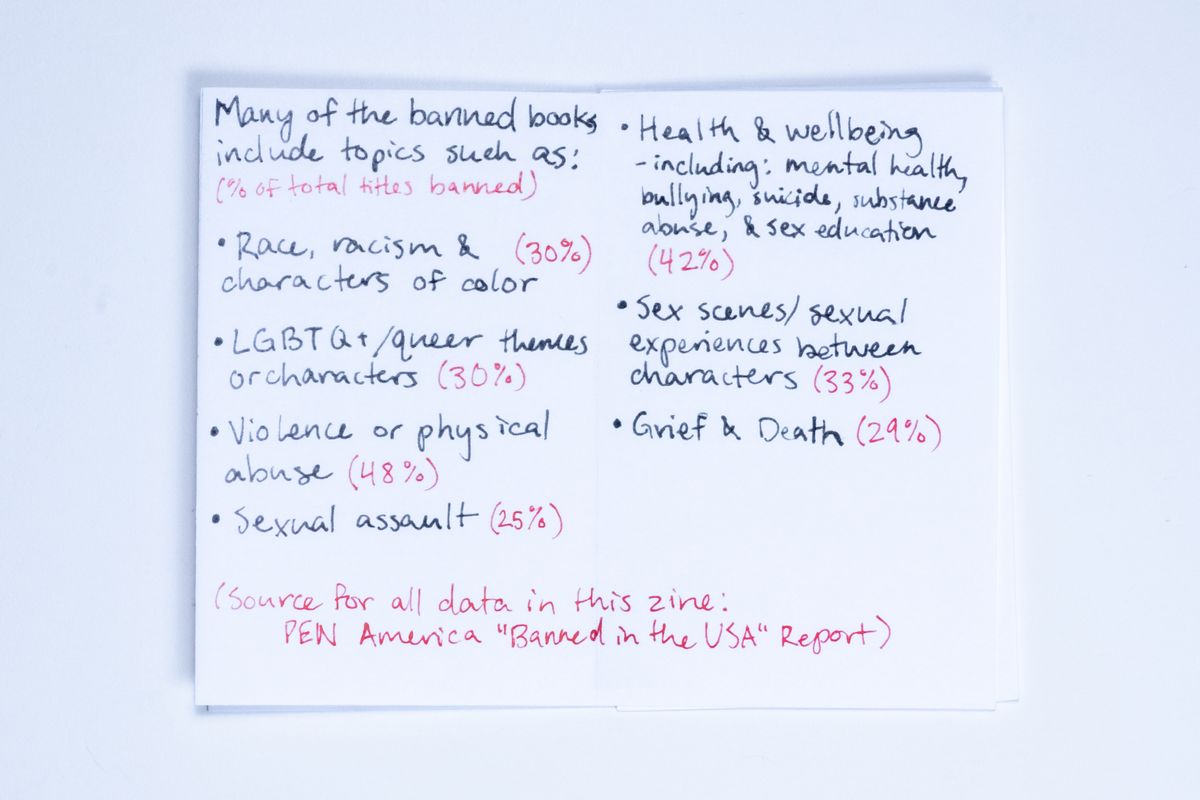 Many of the banned books
include topics such as:
(% of total titles banned)
• Race, racism & (30%)
characters of color
• LGBTQ+/queer themes
or characters (30%)
• Violence or physical
abuse (48%)
• Sexual assault (25%)
• Health & wellbeing
- including: mental health,
bullying, suicide, substance
abuse, & sex education
(42%)
• Sex scenes/sexual
experiences between
characters (33%)
• Grief & Death (29%)
(Source for all data in this zine:
PEN America "Banned in the USA" Report)